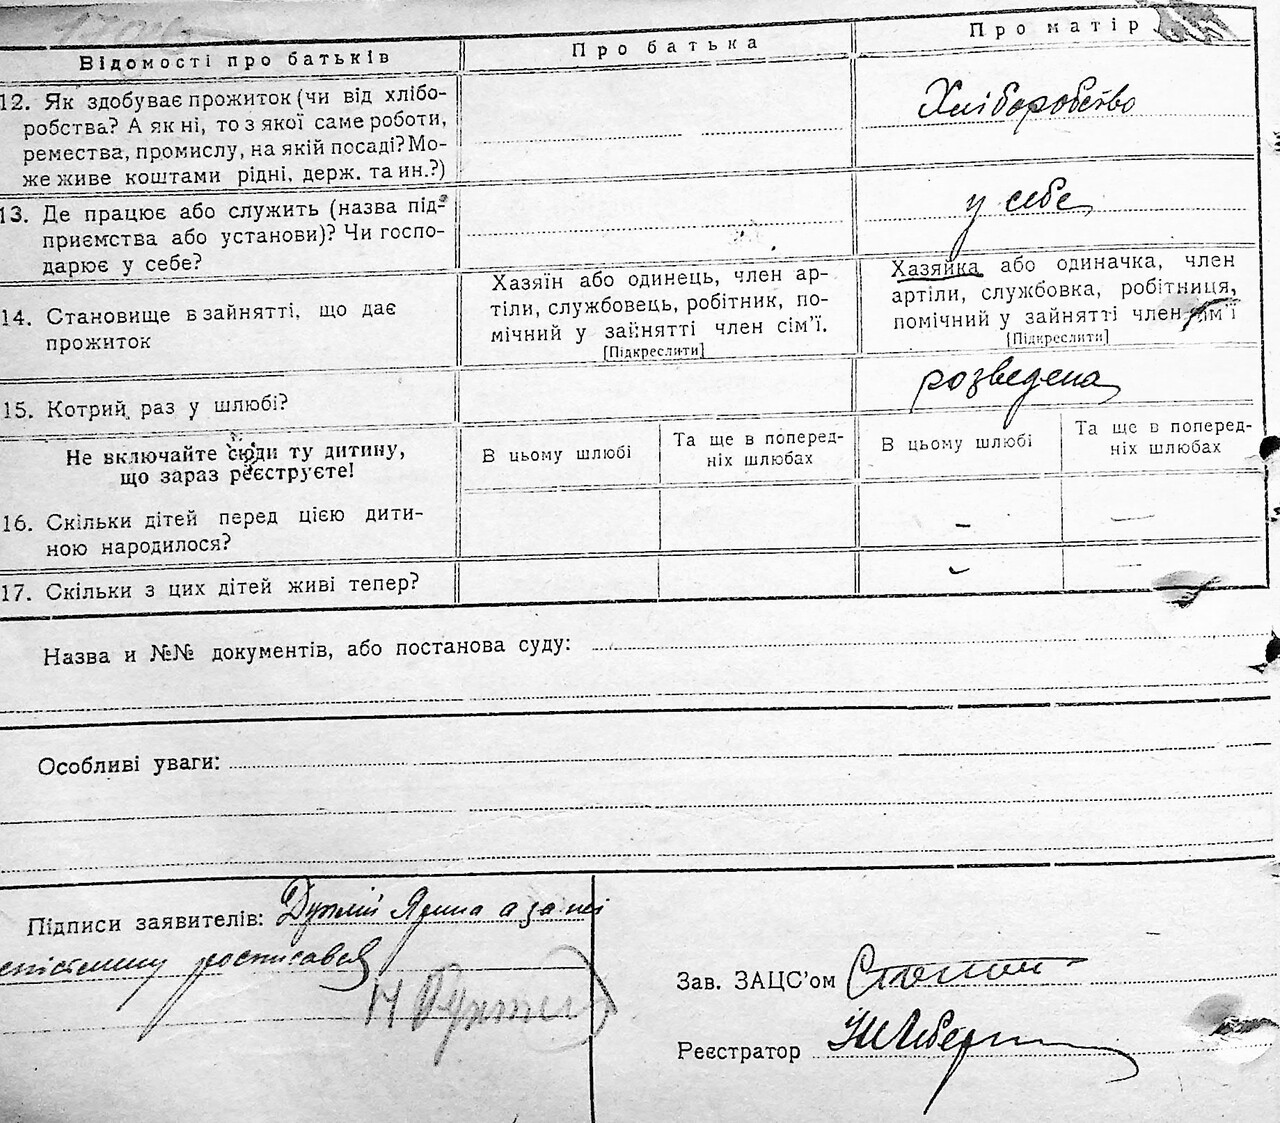 Відомості про батьків
Про батька
Про матір
12. Як здобуває прожиток (чи від хлібо-
робства? А як ні, то з якої саме роботи,
ремества, промислу, на якій посаді? Мо-
же живе коштами рідні, держ. та ин.?)
Хліборобство
13. Де працює або служить (назва під-
приємства або установи)? Чи госпо-
дарює у себе?
у себе
14. Становище в зайнятті, що дає
прожиток
Хазяїн або одинець, член ар-
тіли, службовець, робітник, по-
мічний у зайнятті член сім’ї.
[Підкреслити]
Хазяйка або одиначка, член
артіли, службовка, робітниця,
помічний у зайнятті член сім’ї
[Підкреслити]
15. Котрий раз у шлюбі?
розведена
Не включайте сюди ту дитину,
що зараз реєструєте!
В цьому шлюбі
Та ще в поперед-
ніх шлюбах
В цьому шлюбі
Та ще в поперед-
ніх шлюбах
16. Скільки дітей перед цією дити-
ною народилося?
- —
17. Скільки з цих дітей живі тепер?
- -
Назва и №№ документів, або постанова суду:
Особливі уваги:
Підписи заявителів: Ярина а за
росписався
Зав. ЗАЦС’ом
Реєстратор